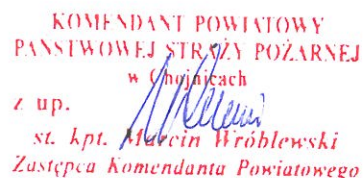 KOMENDANT POWIATOWY
PAŃSTWOWEJ STRAŻY POŻARNEJ
w Chojnicach
z up.
st. kpt. Marcin Wróblewski
Zastępca Komendanta Powiatowego